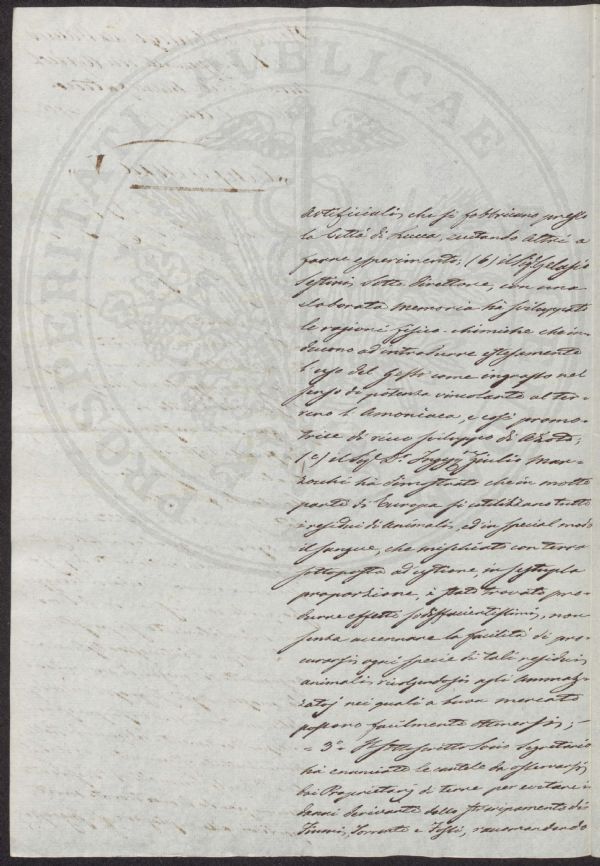 PROSPERITATI PUBLICAE AUGENDAE
Artificiali, che si fabbricano presso
la Città di Lucca, eccitando altri a
farne esperimenti; (b) il Sig.r Gelasio
Sestini, Sotto Direttore, con una
elaborata memoria ha sviluppato
le ragioni fisico-chimiche che in-
ducono ad introdurre estesamente
l'uso del Gesso come ingrasso nel
senso di potenza vincolante al ter-
reno l'Amoniaca, e così promo-
trice di ricco sviluppo di Azoto;
(c) il Sig.r D.r Giulio Mar-
ha dimostrato che in molte
parti di Europa si utilizzano tutti
i residui di animali, ed in special modo
il sangue, che mischiato con terra
sottoposta ad ustione, in sestupla
proporzione, è stato trovato pro-
durre effetti sodisfacientissimi, non
senza accennare la facilità di pro-
curarsi ogni specie di tali residui
animali rivolgendosi agli Ammazz-
atoj nei quali a buon mercato
possono facilmente ottenersi; -
= 3.o Il Socio Segretario
ha enunciate le cautele da osservarsi
dai Proprietarj di terre per evitare i
danni derivante dallo straripamento di
Fiumi, Torrenti e Fossi, raccomandando